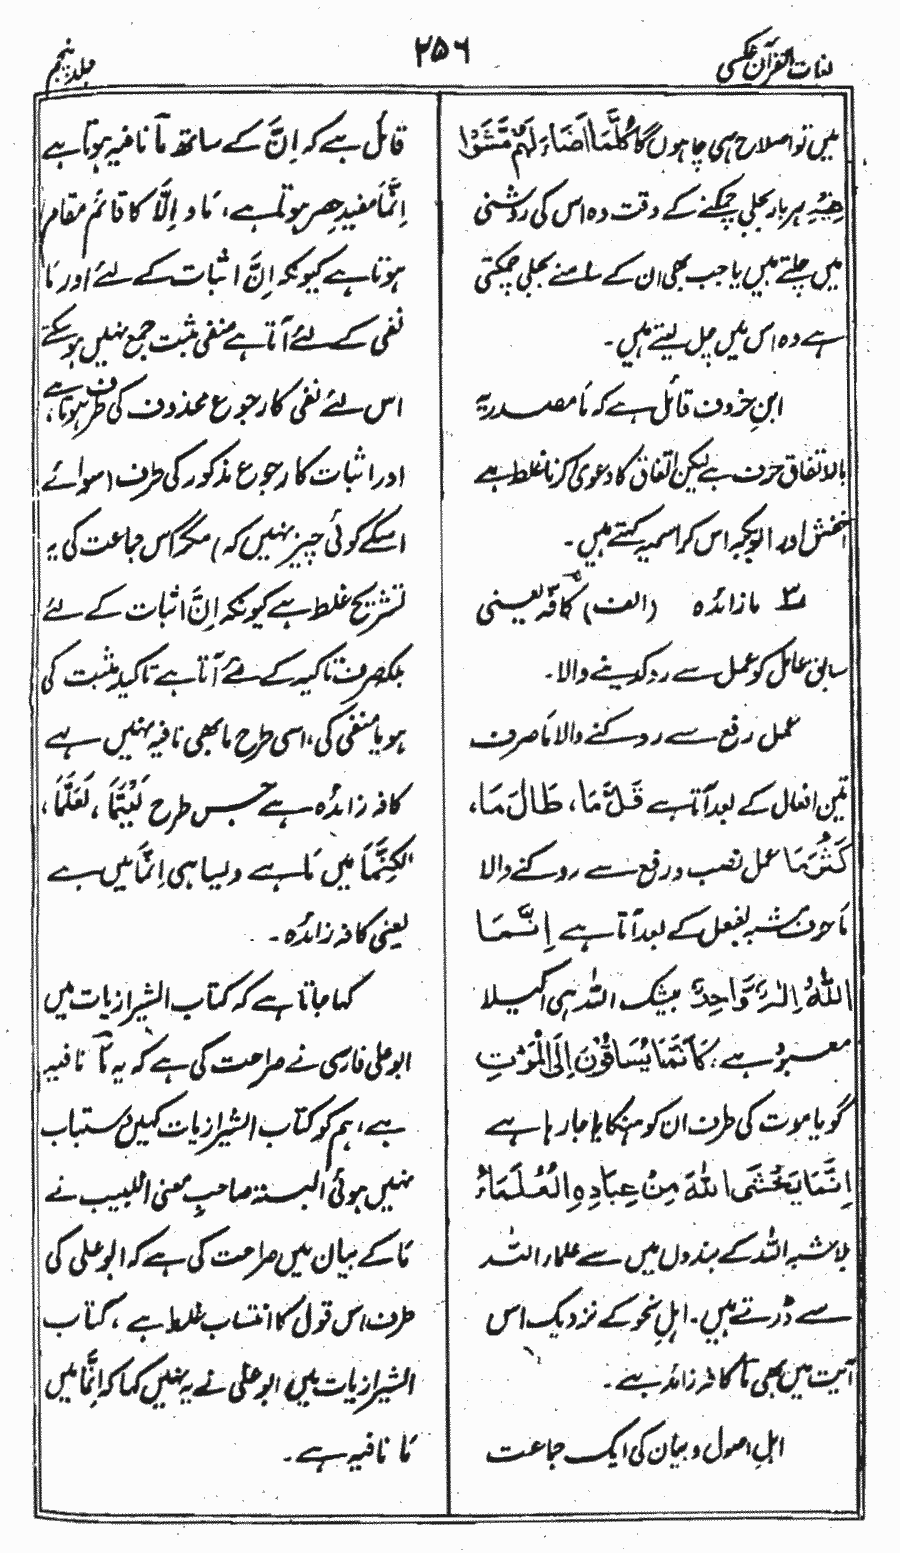 لغات القرآن عکسی
۲۵۶
جلد پنجم
میں تو اصلاح ہی چاہوں گا کُلَّمَا اَضَاءَ لَہُمْ مَّشَوْا
فِیْہِ ہر بار بجلی چمکنے کے وقت وہ اس کی روشنی
میں چلتے ہیں یا جب بھی ان کے سامنے بجلی چمکتی
ہے وہ اس میں چل لیتے ہیں۔
ابنِ خروف قائل ہے کہ مَا مصدریہ
بالاتفاق حرف ہے لیکن اتفاق کا دعویٰ کرنا غلط ہے
اخفش اور ابوبکر اس کو اسمیہ کہتے ہیں۔
۳ ما زائدہ (الف) کافّہ یعنی
سابق عامل کو عمل سے روک دینے والا۔
عمل رفع سے روکنے والا مَا صرف
تین افعال کے بعد آتا ہے قَلَّ مَا، طَالَ مَا،
کَثُرَ مَا عمل نصب و رفع سے روکنے والا
مَا حرف مشبہ بفعل کے بعد آتا ہے اِنَّمَا
اللّٰہُ اِلٰہٌ وَّاحِدٌ بیشک اللہ ہی اکیلا
معبود ہے، کَاَنَّمَا یُسَاقُوْنَ اِلَی الْمَوْتِ
گویا موت کی طرف ان کو ہنکایا جا رہا ہے
اِنَّمَا یَخْشَی اللّٰہَ مِنْ عِبَادِہِ الْعُلَمَاءُ
بلا شبہ اللہ کے بندوں میں سے علماء اللہ
سے ڈرتے ہیں۔ اہلِ نحو کے نزدیک اس
آیت میں بھی مَا کافہ زائدہ ہے۔
اہلِ اصول و بیان کی ایک جماعت
قائل ہے کہ اِنَّ کے ساتھ مَا نافیہ ہوتا ہے
اِنَّمَا مفیدِ حصر ہوتا ہے، مَا و اِلَّا کا قائم مقام
ہوتا ہے کیونکہ اِنَّ اثبات کے لئے اور مَا
نفی کے لئے آتا ہے منفی مثبت جمع نہیں ہو سکتے
اس لئے نفی کا رجوع محذوف کی طرف ہوتا ہے،
اور اثبات کا رجوع مذکور کی طرف (سوائے
اسکے کوئی چیز نہیں کہ) مگر اس جماعت کی یہ
تشریح غلط ہے کیونکہ اِنَّ اثبات کے لئے
بلکہ صرف تاکید کے لئے آتا ہے تاکید مثبت کی
ہو یا منفی کی، اسی طرح ما بھی نافیہ نہیں ہے
کافہ زائدہ ہے جس طرح لَیْتَمَا، لَعَلَّمَا،
لٰکِنَّمَا میں مَا ہے ویسا ہی اِنَّمَا میں ہے
یعنی کافہ زائدہ۔
کہا جاتا ہے کہ کتاب الشیرازیات میں
ابو علی فارسی نے صراحت کی ہے کہ یہ مَا نافیہ
ہے، ہم کو کتاب الشیرازیات کہیں دستیاب
نہیں ہوئی البتہ صاحبِ مغنی اللبیب نے
مَا کے بیان میں صراحت کی ہے کہ ابو علی کی
طرف اس قول کا انتساب غلط ہے، کتاب
الشیرازیات میں ابو علی نے یہ نہیں کہا کہ اِنَّمَا میں
مَا نافیہ ہے۔